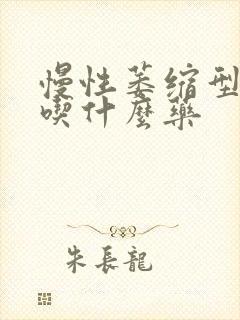 慢性萎缩型
喫什麼藥
朱長龍